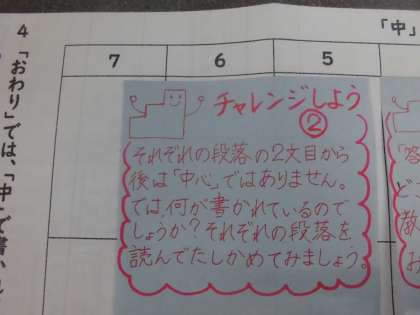 「中」
4
「おわり」では、「中」で書
7 6 5
チャレンジしよう
②
それぞれの段落の2文目から
後は「中心」ではありません。
では、何が書かれているので
しょうか？それぞれの段落を
読んでたしかめてみましょう。
「答
どこ
教
み